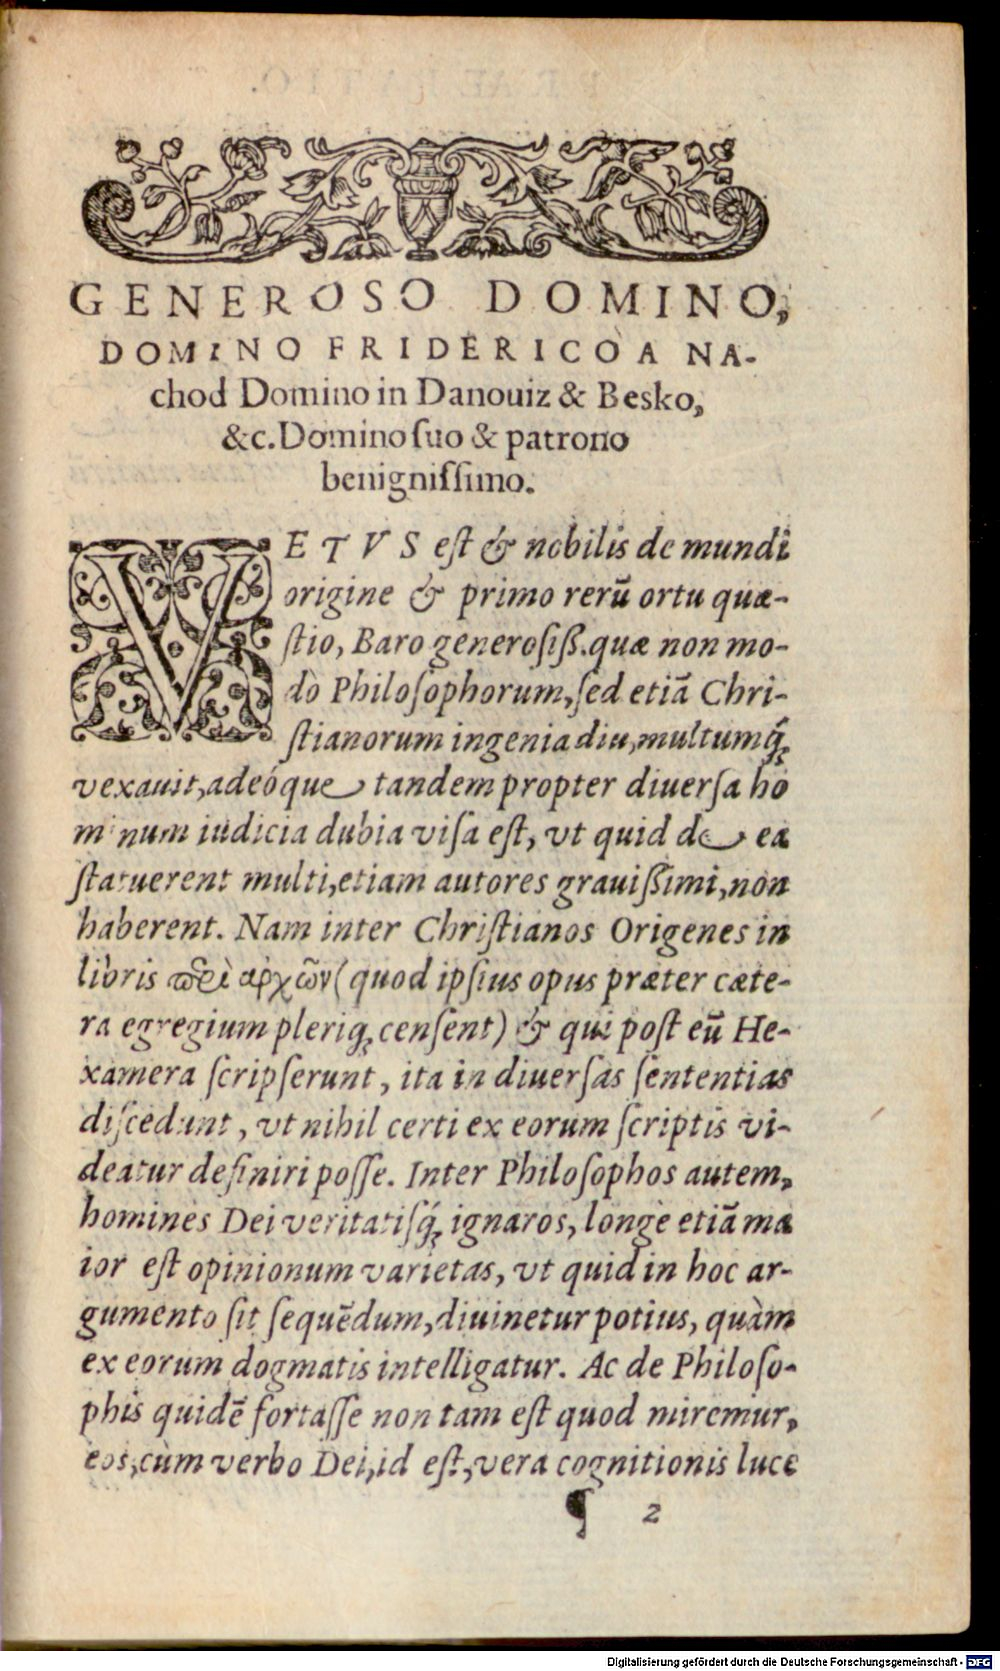 GENEROSO DOMINO,
DOMINO FRIDERICO À NA-
chod Domino in Danouiz & Besko,
&c. Domino ſuo & patrono
benigniſſimo.
VETVS eſt & nobilis de mundi
origine & primo rerū ortu quæ-
ſtio, Baro generoſiß. quæ non mo-
dò Philoſophorum, ſed etiā Chri-
ſtianorum ingenia diu, multumq́;
vexauit, adeóque tandem propter diuerſa ho
minum iudicia dubia viſa eſt, vt quid de ea
ſtatuerent multi, etiam autores grauißimi, non
haberent. Nam inter Chriſtianos Origenes in
libris περὶ ἀρχῶν (quod ipſius opus præter cæte-
ra egregium pleriq; cenſent) & qui poſt eū He-
xamera ſcripſerunt, ita in diuerſas ſententias
diſcedunt, vt nihil certi ex eorum ſcriptis vi-
deatur definiri poſſe. Inter Philoſophos autem,
homines Dei veritatiſq́; ignaros, longè etiā ma
ior eſt opinionum varietas, vt quid in hoc ar-
gumento ſit ſequēdum, diuinetur potius, quàm
ex eorum dogmatis intelligatur. Ac de Philoſo-
phis quidē fortaſſe non tam eſt quod miremur,
eos, cùm verbo Dei, id eſt, vera cognitionis luce
¶ 2
Digitalisierung gefördert durch die Deutsche Forschungsgemeinschaft - DFG